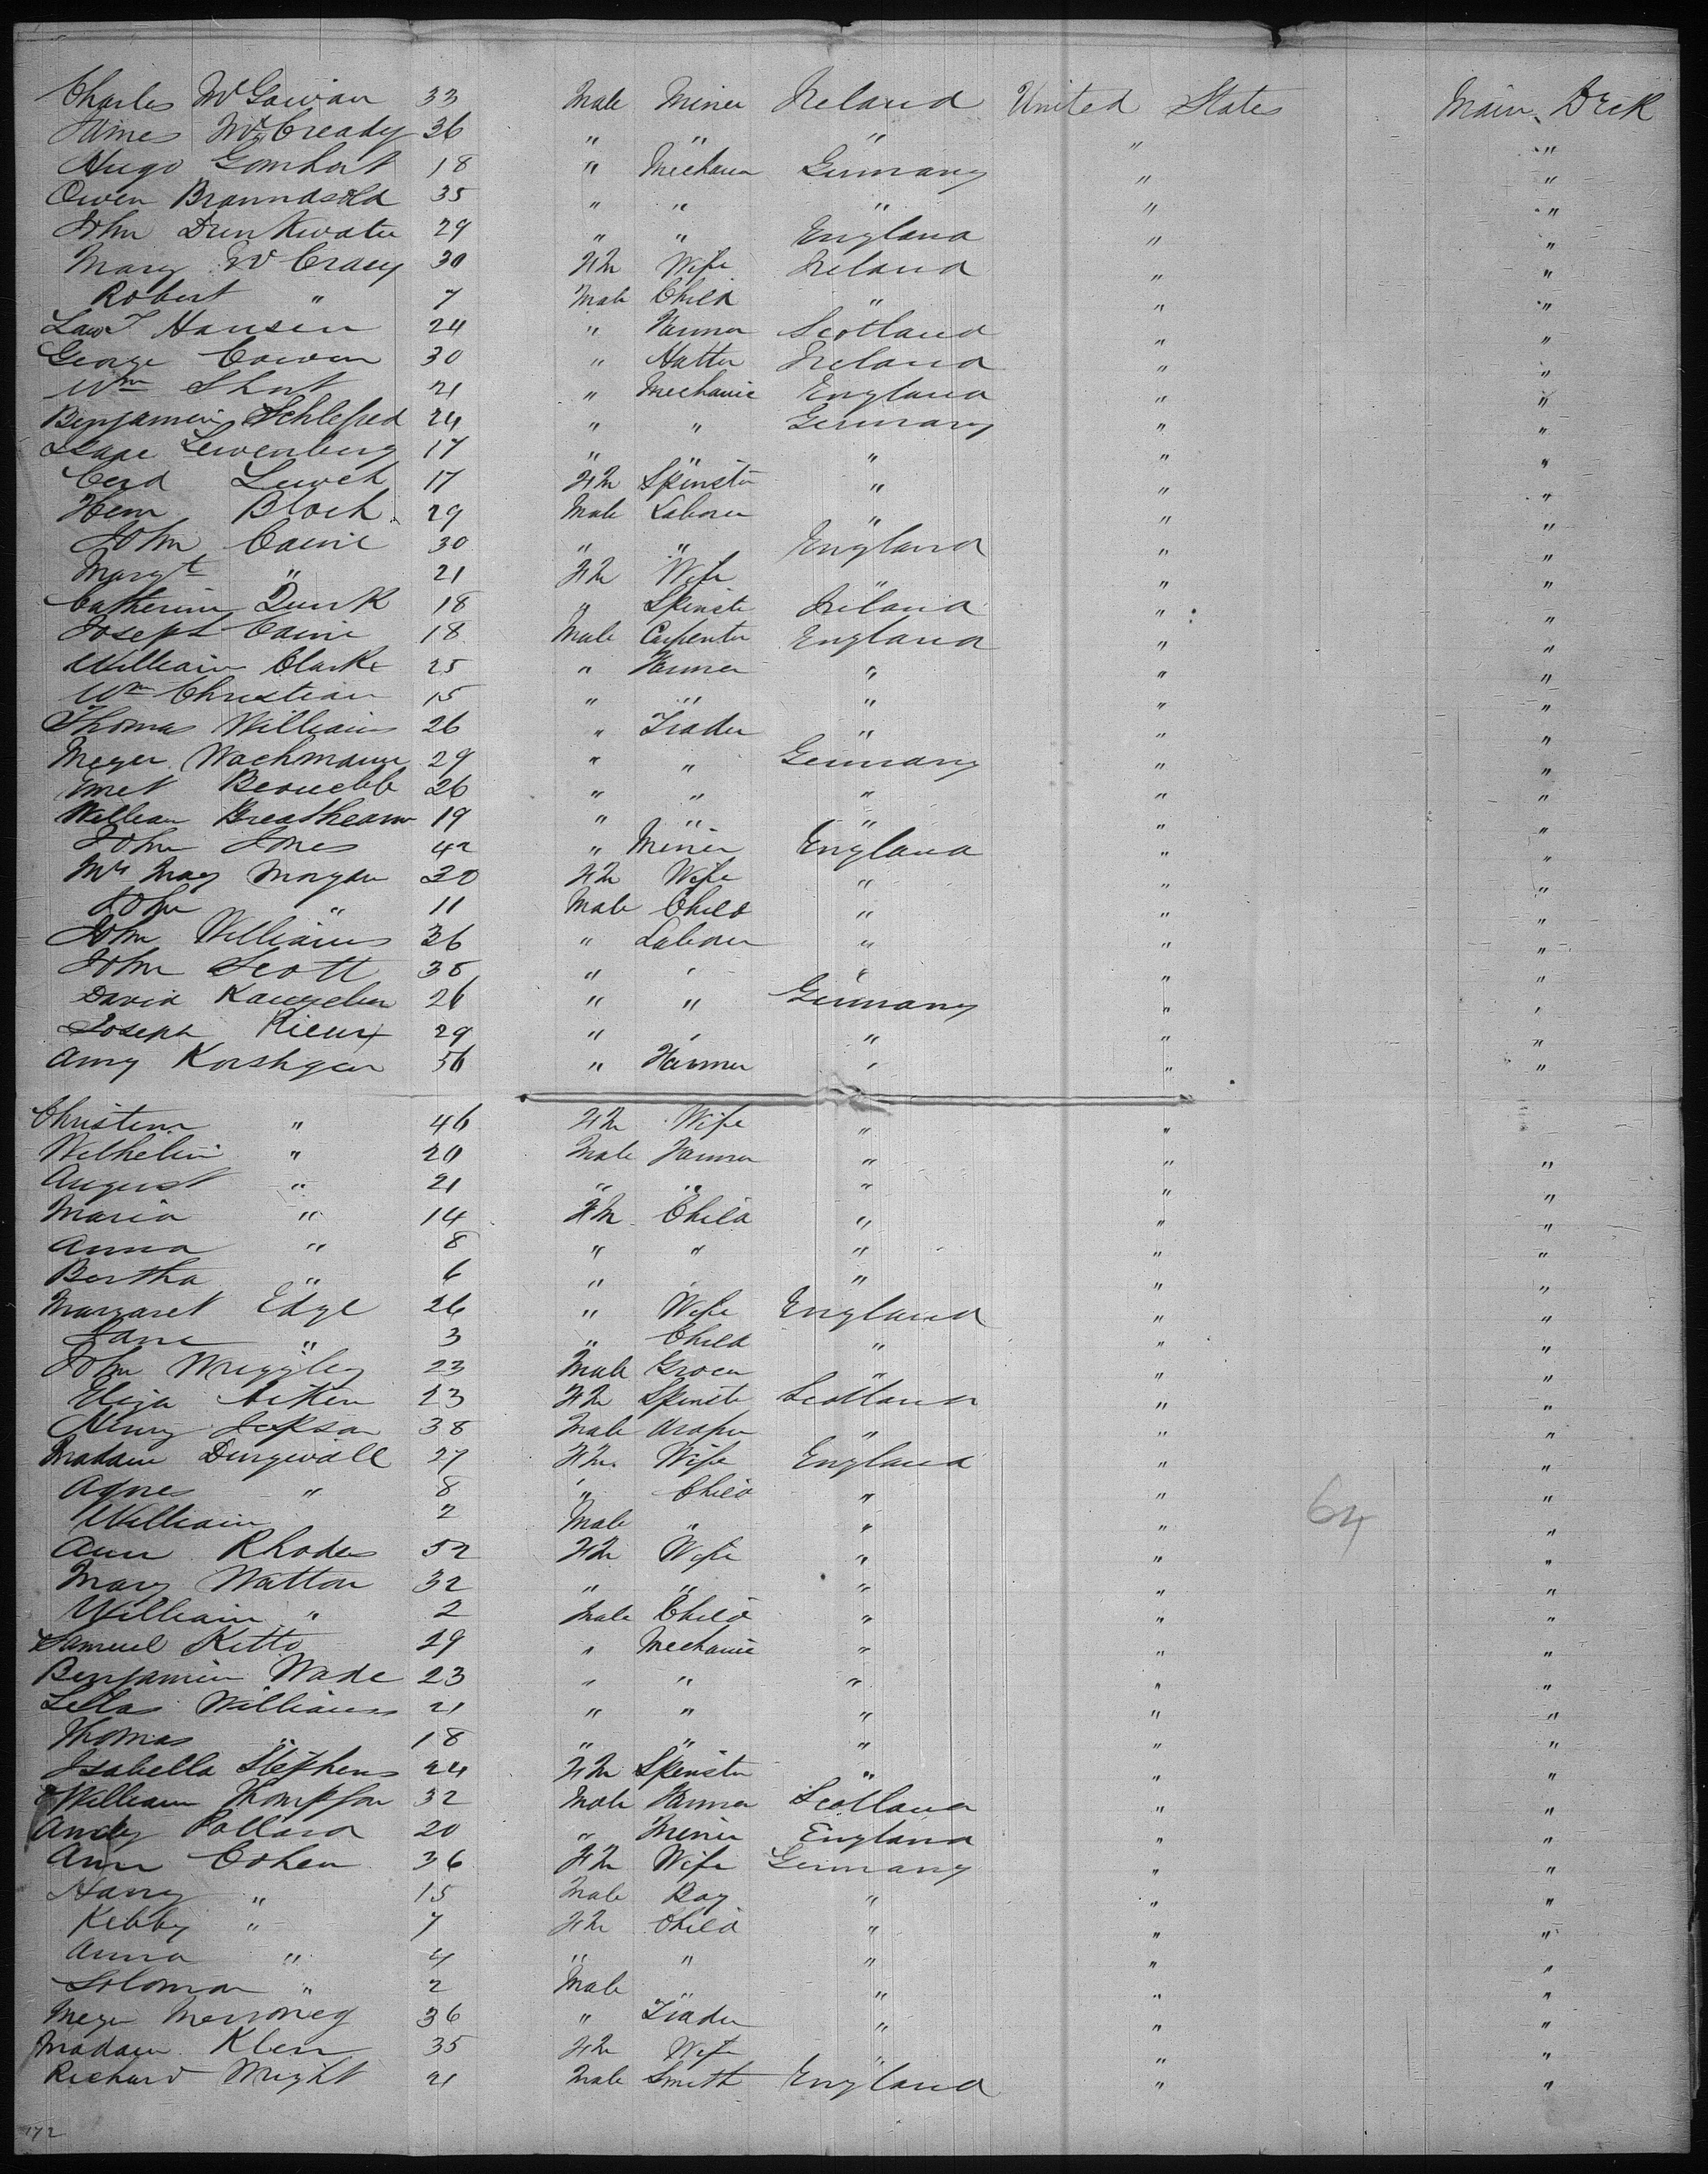 Charles McGowan 33 Male Miner Ireland United States Main Deck
James McCready 36 " " " " "
Hugo Gomhort 18 " Mechan Germany " "
Owen 35 " " " " "
John Drinkwater 29 " " England " "
Mary McCracy 30 Fm Wife Ireland " "
Robert " 7 Male Child " " "
Law T Hansen 24 " Farmer Scotland " "
George Cowen 30 " Hatter Ireland " "
Wm Short 21 " Mechanic England " "
Benjamin 24 " " Germany " "
Isaac Lewenberg 17 " " " " "
17 Fm Spinster " " "
Hem Bloch 29 Male Laborer " " "
John Caine 30 " " England " "
Margt " 21 Fm Wife " " "
Catherine Quirk 18 " Spinste Ireland " "
Joseph Caine 18 Male Carpenter England " "
William Clarke 25 " Farmer " " "
Wm Christian 15 " " " " "
Thomas Williams 26 " Trader " " "
Meyer Wachmann 29 " " Germany " "
26 " " " " "
William 19 " " " " "
John Jones 42 " Miner England " "
Mrs Mary Morgan 30 Fm Wife " " "
John " 11 Male Child " " "
John Williams 36 " Laborer " " "
John Scott 35 " " " " "
David 26 " " Germany " "
Joseph 29 " " " " "
Korshgen 56 " Farmer " " "
Christena " 46 Fm Wife " "
Wilhelm " 20 Male Farmer " " "
August " 21 " " " " "
Maria " 14 Fm Child " " "
Anna " 8 " " " " "
Bertha " 6 " " " " "
Margaret Edge 26 " Wife England " "
Jane " 3 " Child " " "
John Wriggley 23 Male Grocer " " "
Eliza Aitken 23 Fm Spinste Scotland " "
Henry Jepson 38 Male Draper " " "
Madam Dungwall 27 Fm Wife England " "
Agnes " 8 " Child " " "
William 2 Male " " " "
Ann Rhodes 52 Fm Wife " " "
Mary Watton 32 " " " " "
William " 2 Male Child " " "
Samuel Kitto 29 " Mechanic " " "
Benjamin Wade 23 " " " " "
Williams 21 " " " " "
Thomas " 18 " " " " "
Isabella Stephens 24 Fm Spinster " " "
William Thompson 32 Male Farmer Scotland " "
Andy Pollard 20 " Miner England " "
Ann Cohen 36 Fm Wife Germany " "
Harry " 15 Male Boy " " "
Kibby " 7 Fm Child " " "
Anna " 4 " " " " "
Solomon " 2 Male " " " "
36 " Trader " " "
Madam Klein 35 Fm Wife " " "
Richard Wright 21 Male Smith England " "
64
172